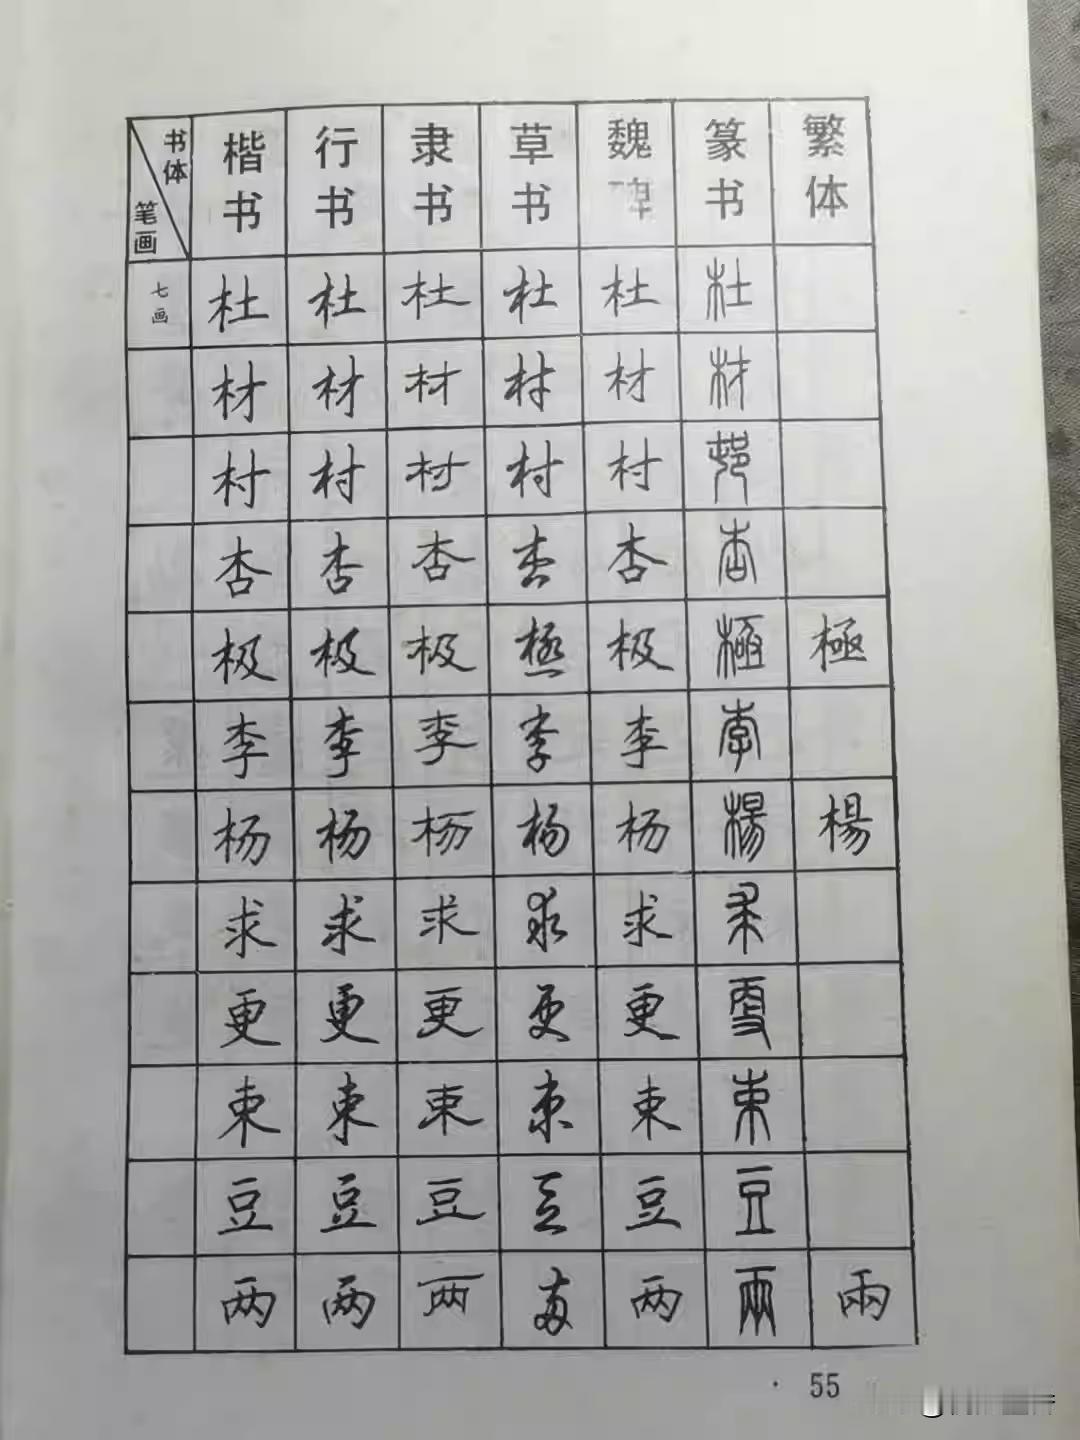 书体 笔画 楷书 行书 隶书 草书 魏碑 篆书 繁体
七画 杜 杜 杜 杜 杜 杜
材 材 材 材 材 材
村 村 村 村 村 邨
杏 杏 杏 杏 杏 杏
极 极 极 極 极 極 極
李 李 李 李 李 李
杨 杨 杨 杨 杨 楊 楊
求 求 求 求 求 求
更 更 更 更 更 更
束 束 束 束 束 束
豆 豆 豆 豆 豆 豆
两 两 两 两 两 兩 兩
· 55